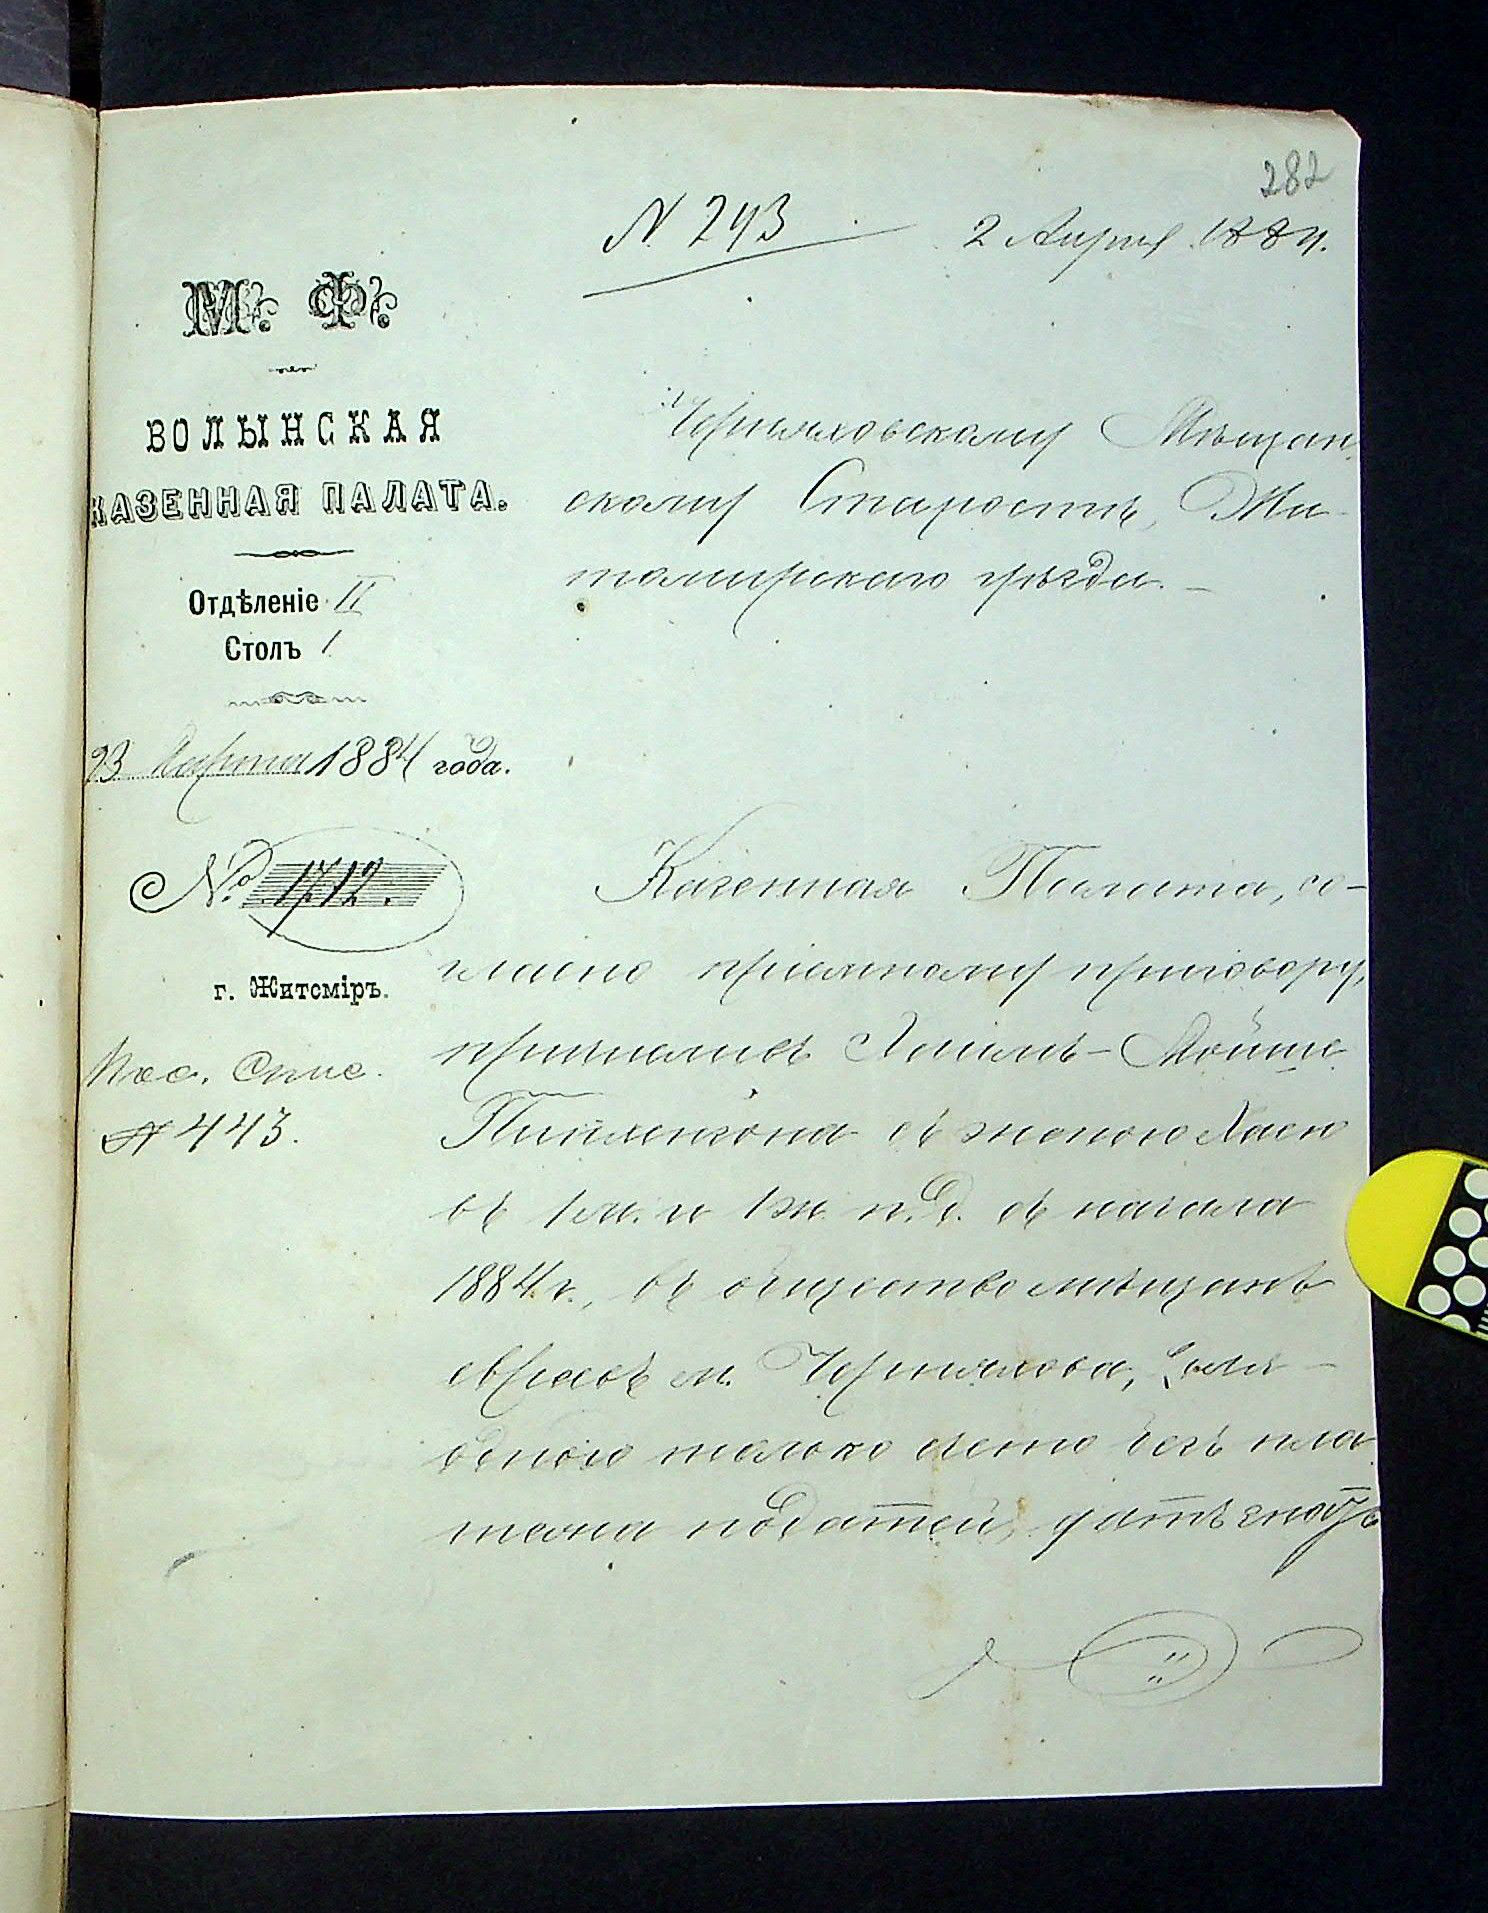 282
№ 243 2 Апрѣля 1884.
М. Ф.
ВОЛЫНСКАЯ
КАЗЕННАЯ ПАЛАТА.
Отдѣленіе II
Столъ 1
23 Марта 1884 года.
№ 1712.
г. Житомiръ.
Спис.
№ 443.
Черняховскому Мѣщан-
скому Старостѣ, Жи-
томирскаго уѣзда.
Казенная Палата, со-
гласно пріемному приговору,
причисливъ Хаимъ-Мойше
съ женою Хаею
въ 1 м. и 1 ж. п. д. съ начала
1884 г., въ общество мѣщанъ
евреевъ м. Черняхова, для
одного только счета безъ пла-
тежа податей,